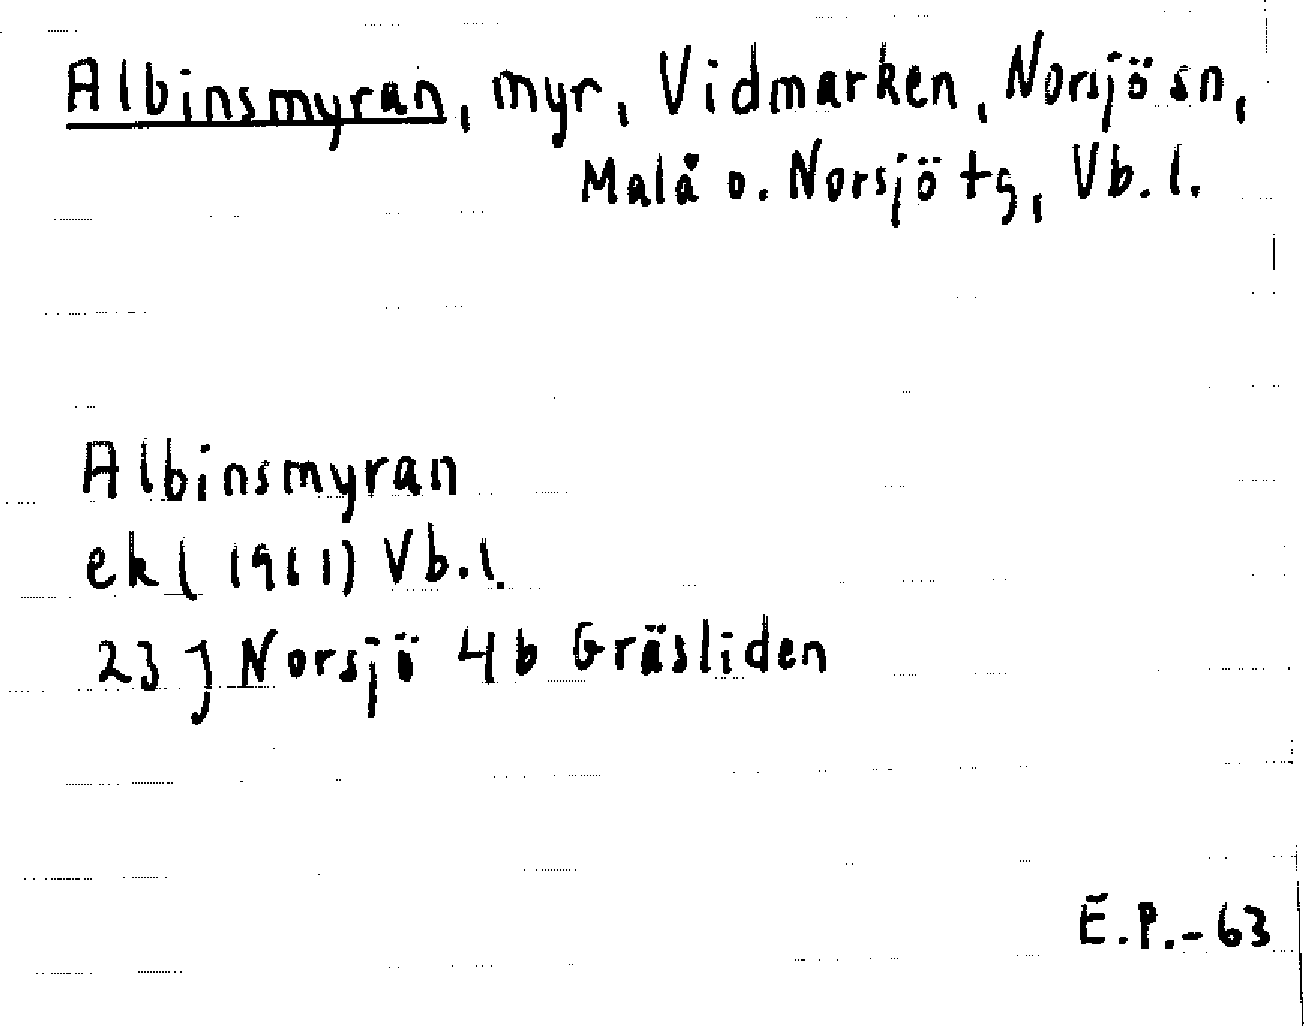 Albinsmyran, myr, Vidmarken, Norsjö sn,
Malå o. Norsjö tg, Vb. l.
Albinsmyran
ek ( 1961) Vb.l.
23 J Norsjö 4 b Gräsliden
E.P.-63